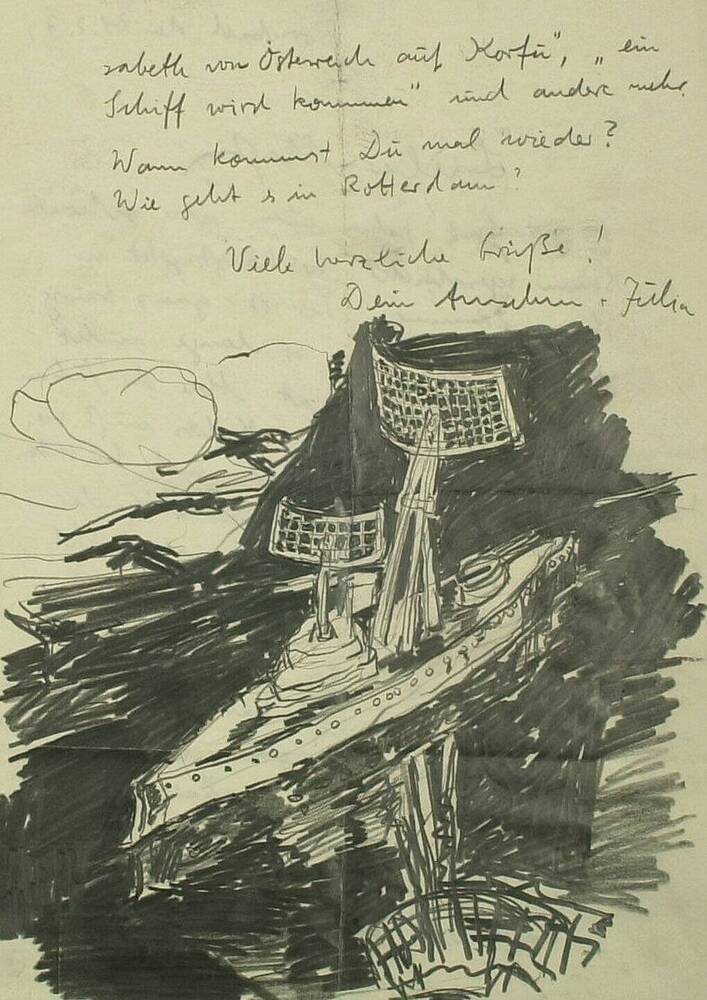 sabeth von Österreich auf Korfu", „ein
Schiff wird kommen" und andere mehr.
Wann kommst Du mal wieder?
Wie geht s in Rotterdam?
Viele herzliche Grüße!
Dein Anselm + Julia